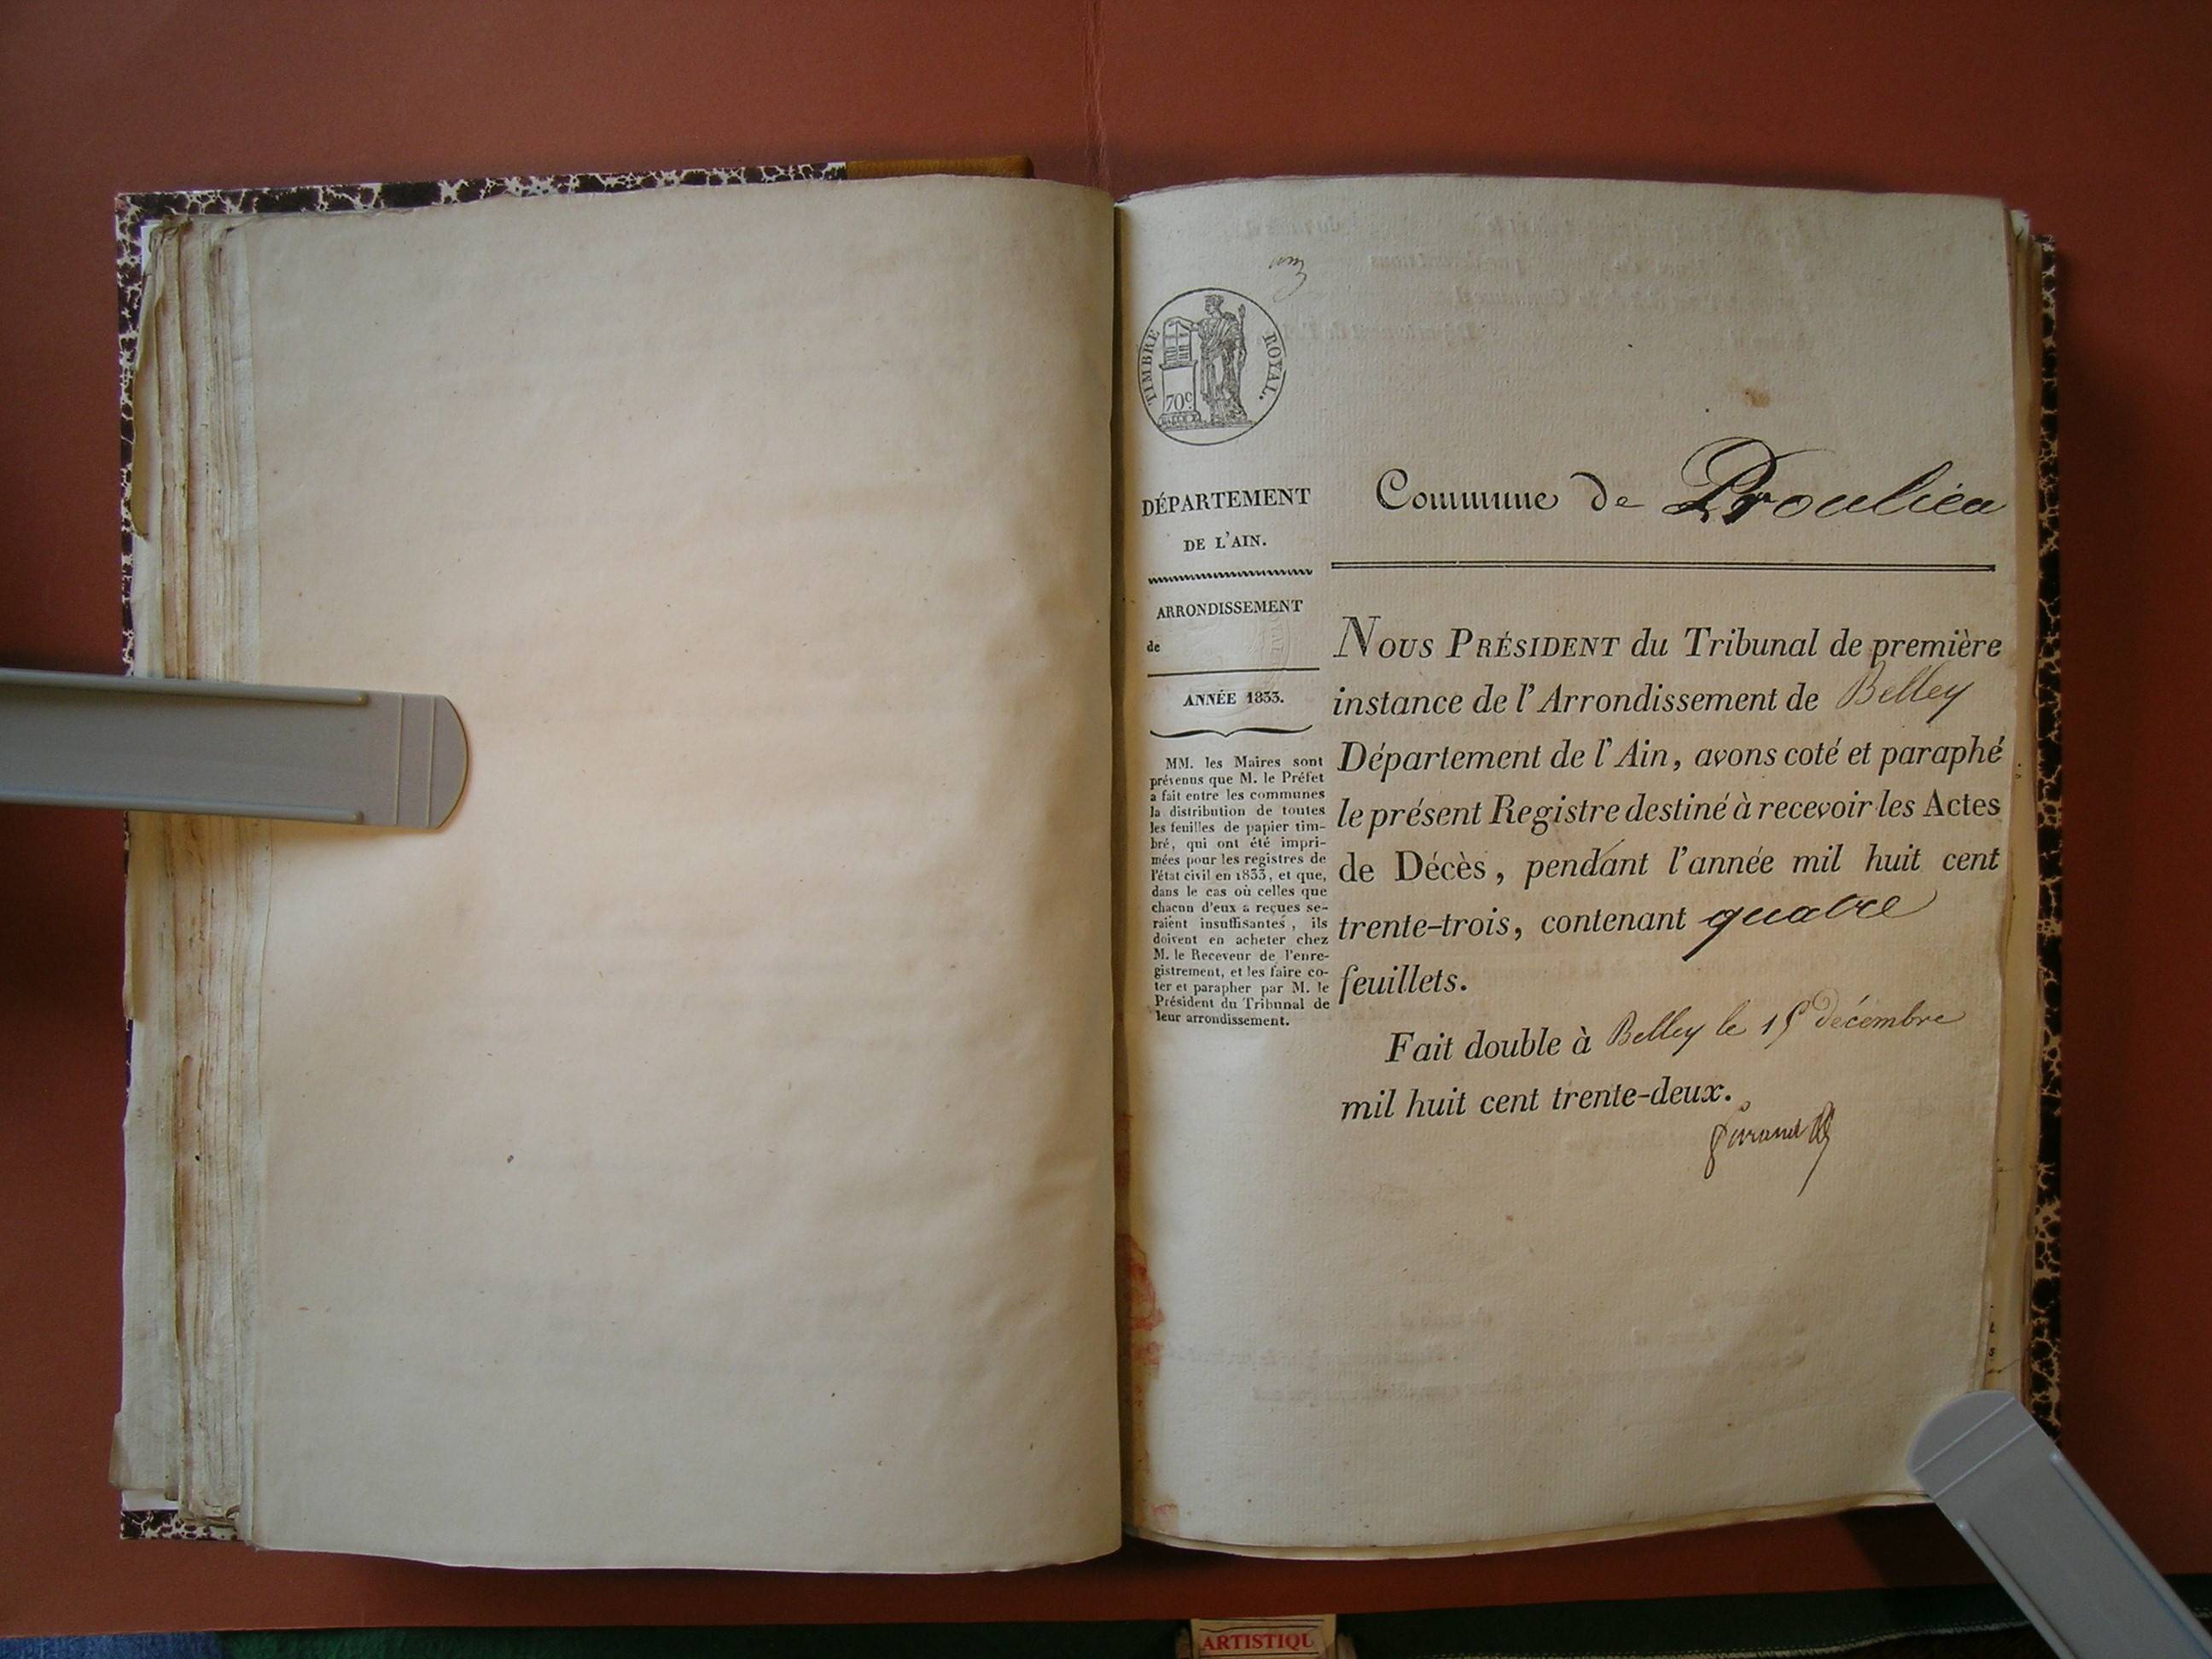 TIMBRE ROYAL.
70c
DÉPARTEMENT
DE L'AIN.
ARRONDISSEMENT
de
ANNÉE 1833.
MM. les Maires sont
prévenus que M. le Préfet
a fait entre les communes
la distribution de toutes
les feuilles de papier tim-
bré, qui ont été impri-
mées pour les registres de
l'état civil en 1833, et que,
dans le cas où celles que
chacun d'eux a reçues se-
raient insuffisantes, ils
doivent en acheter chez
M. le Receveur de l'enre-
gistrement, et les faire co-
ter et parapher par M. le
Président du Tribunal de
leur arrondissement.
Commune de Proulieu
NOUS PRÉSIDENT du Tribunal de première
instance de l'Arrondissement de Belley
Département de l'Ain, avons coté et paraphé
le présent Registre destiné à recevoir les Actes
de Décès, pendant l'année mil huit cent
trente-trois, contenant quatre
feuillets.
Fait double à Belley le 15 décembre
mil huit cent trente-deux.
ARTISTIQU